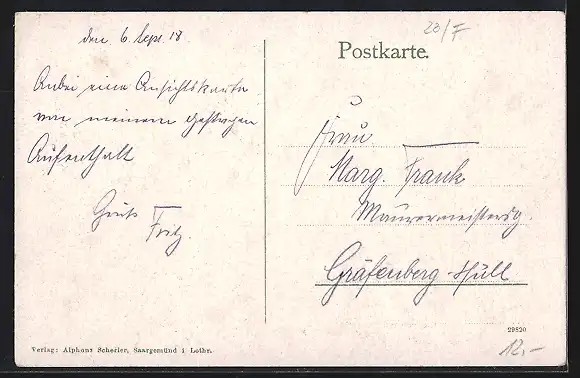 den 6. Sept. 18
Anbei eine Ansichtskarte
von meinem gestrigen
Aufenthalt
Gruß
Fritz.
20/F
Postkarte.
Frau
Marg. Frank
Maurermeistersg.
Gräfenberg-Hüll
Verlag: Alphons Scherier, Saargemünd i Lothr.
29820
12,-